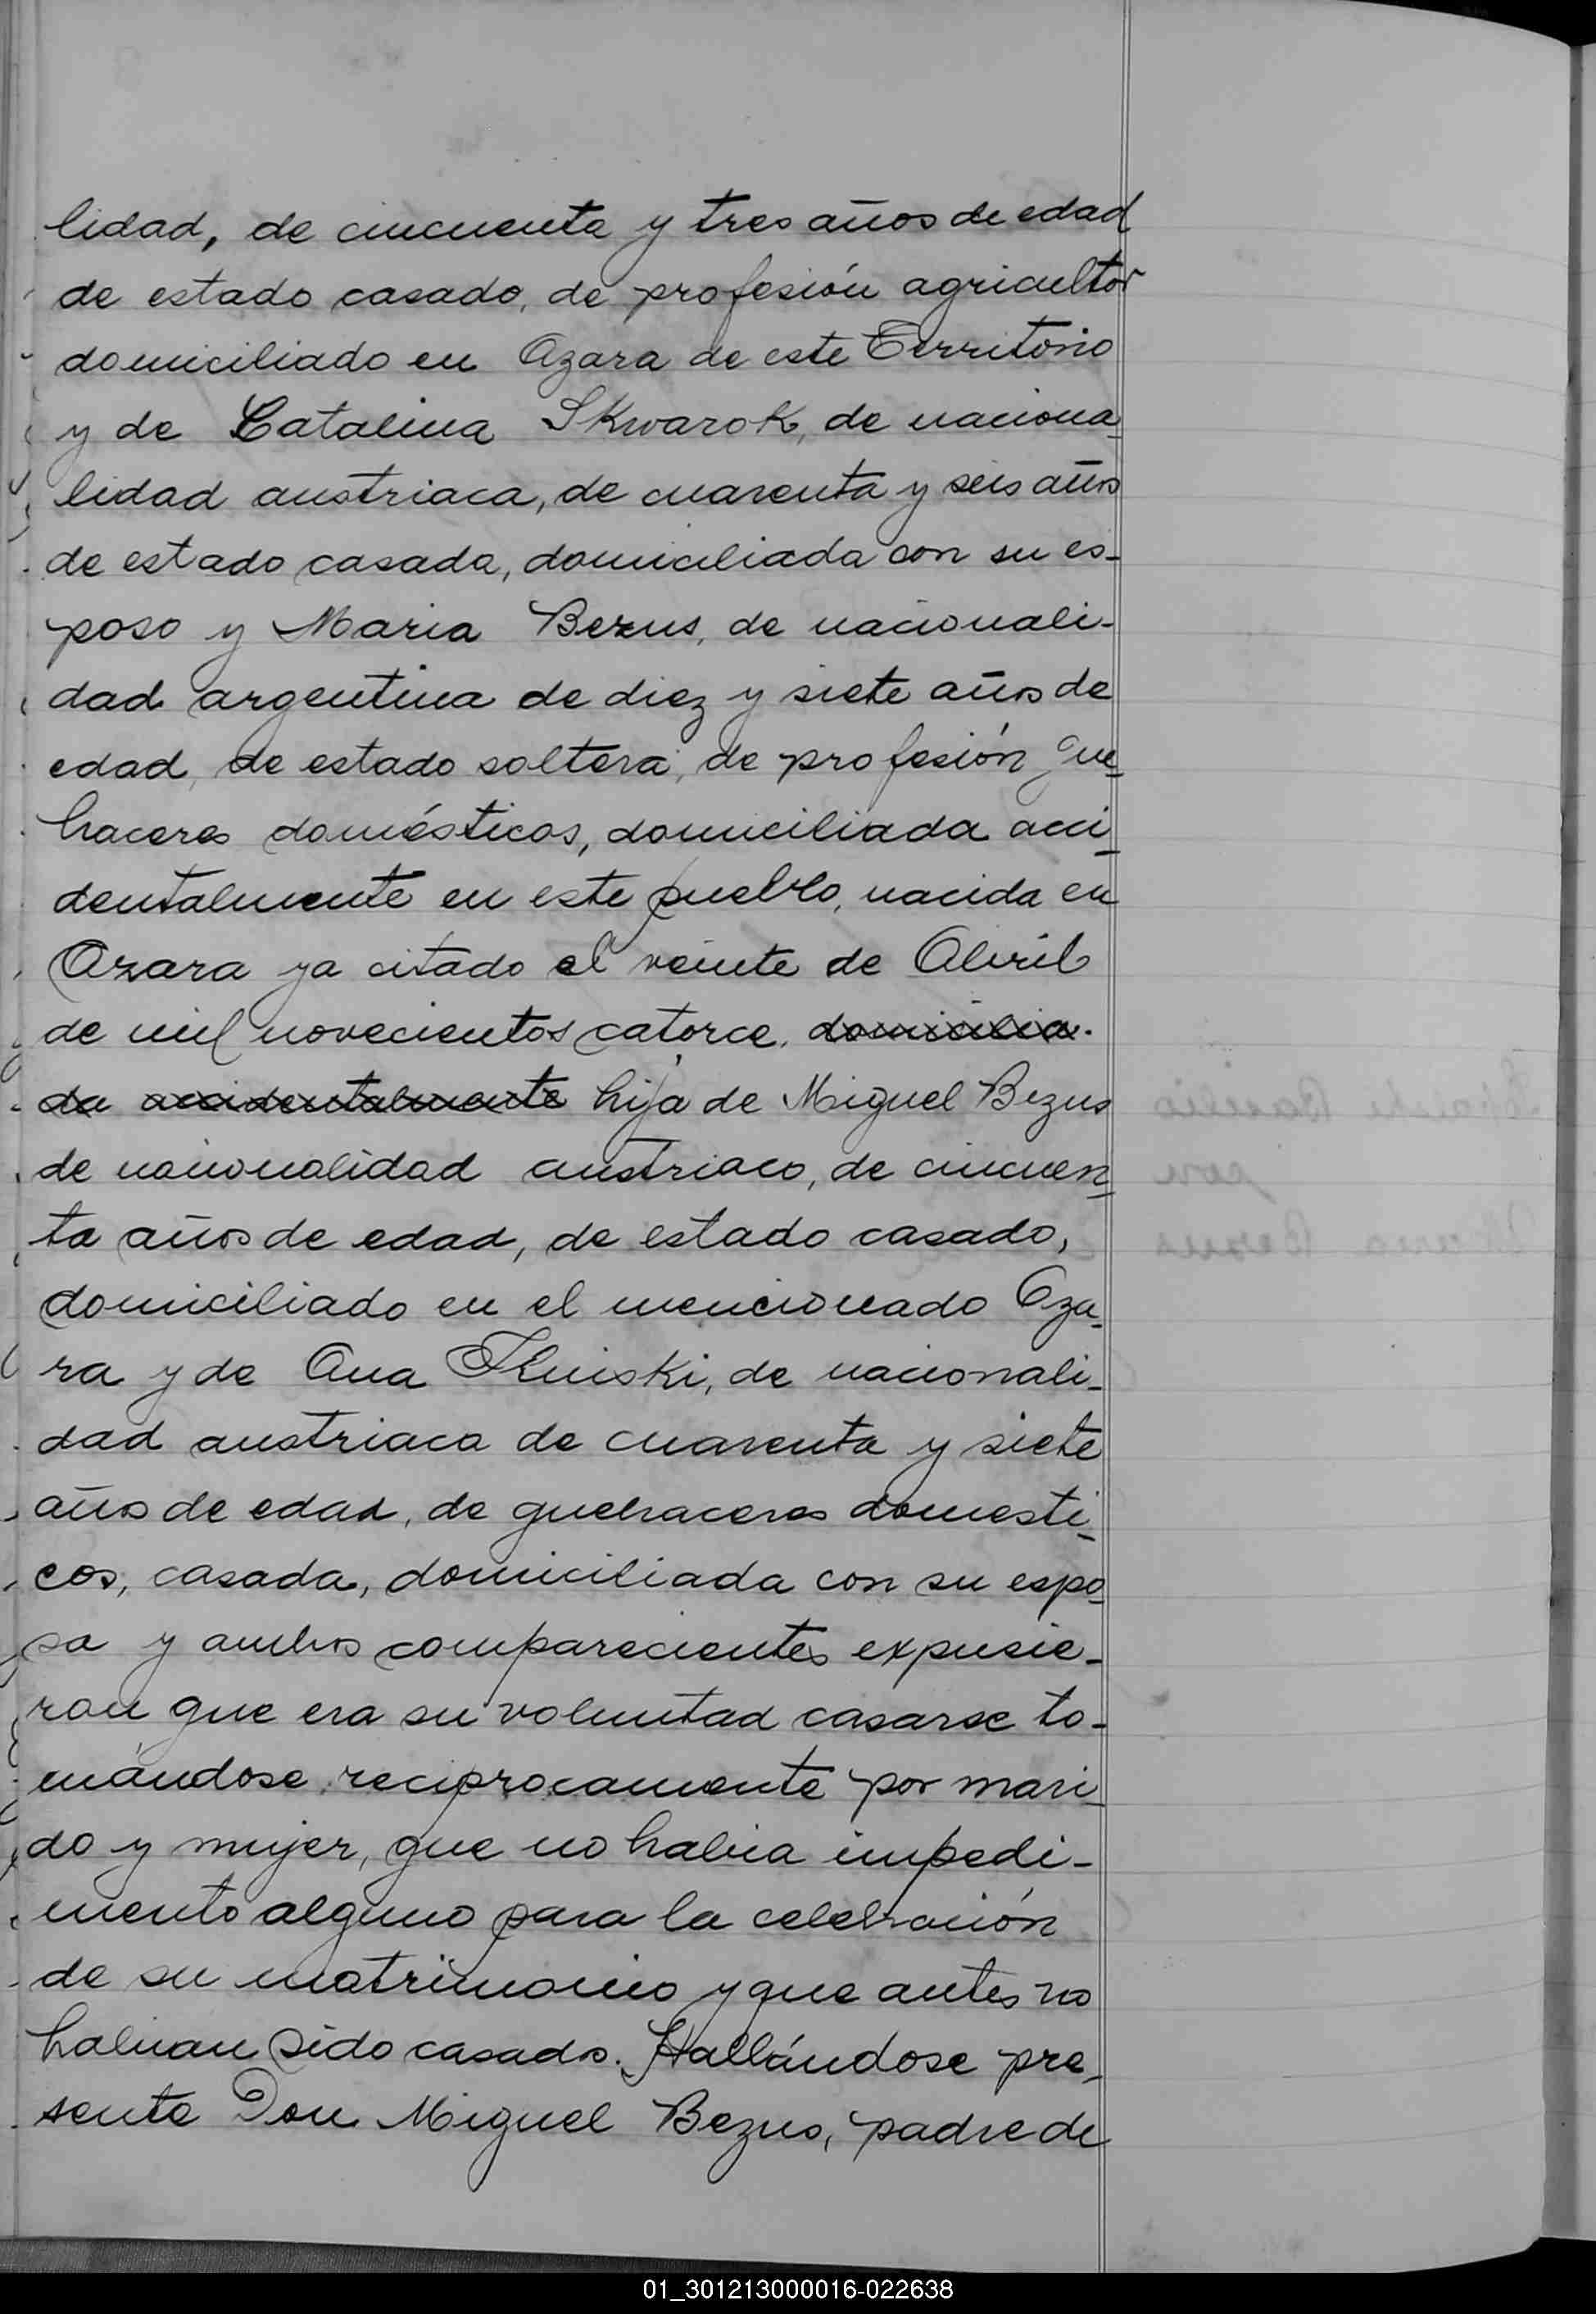 lidad, de cincuenta y tres años de edad
de estado casado, de profesión agricultor
domiciliado en Azara de este Territorio
y de Catalina Skwarok, de naciona-
lidad austriaca, de cuarenta y seis años
de estado casada, domiciliada con su es-
poso y Maria Bezus, de nacionali-
dad argentina de diez y siete años de
edad, de estado soltera, de profesión que-
haceres domésticos, domiciliada acci-
dentalmente en este pueblo, nacida en
Azara ya citado el veinte de Abril
de mil novecientos catorce, domicilia-
da accidentalmente hija de Miguel Bezus
de nacionalidad austriaco, de cincuen-
ta años de edad, de estado casado,
domiciliado en el mencionado Aza-
ra y de Ana, de nacionali-
dad austriaca de cuarenta y siete
años de edad, de quehaceres domesti-
cos, casada, domiciliada con su espo-
so y ambos comparecientes expusie-
ron que era su voluntad casarse to-
mándose reciprocamente por mari-
do y mujer, que no habia impedi-
mento alguno para la celebración
de su matrimonio y que antes no
habian sido casados. Hallándose pre-
sente Don Miguel Bezus, padre de
01_301213000016-022638